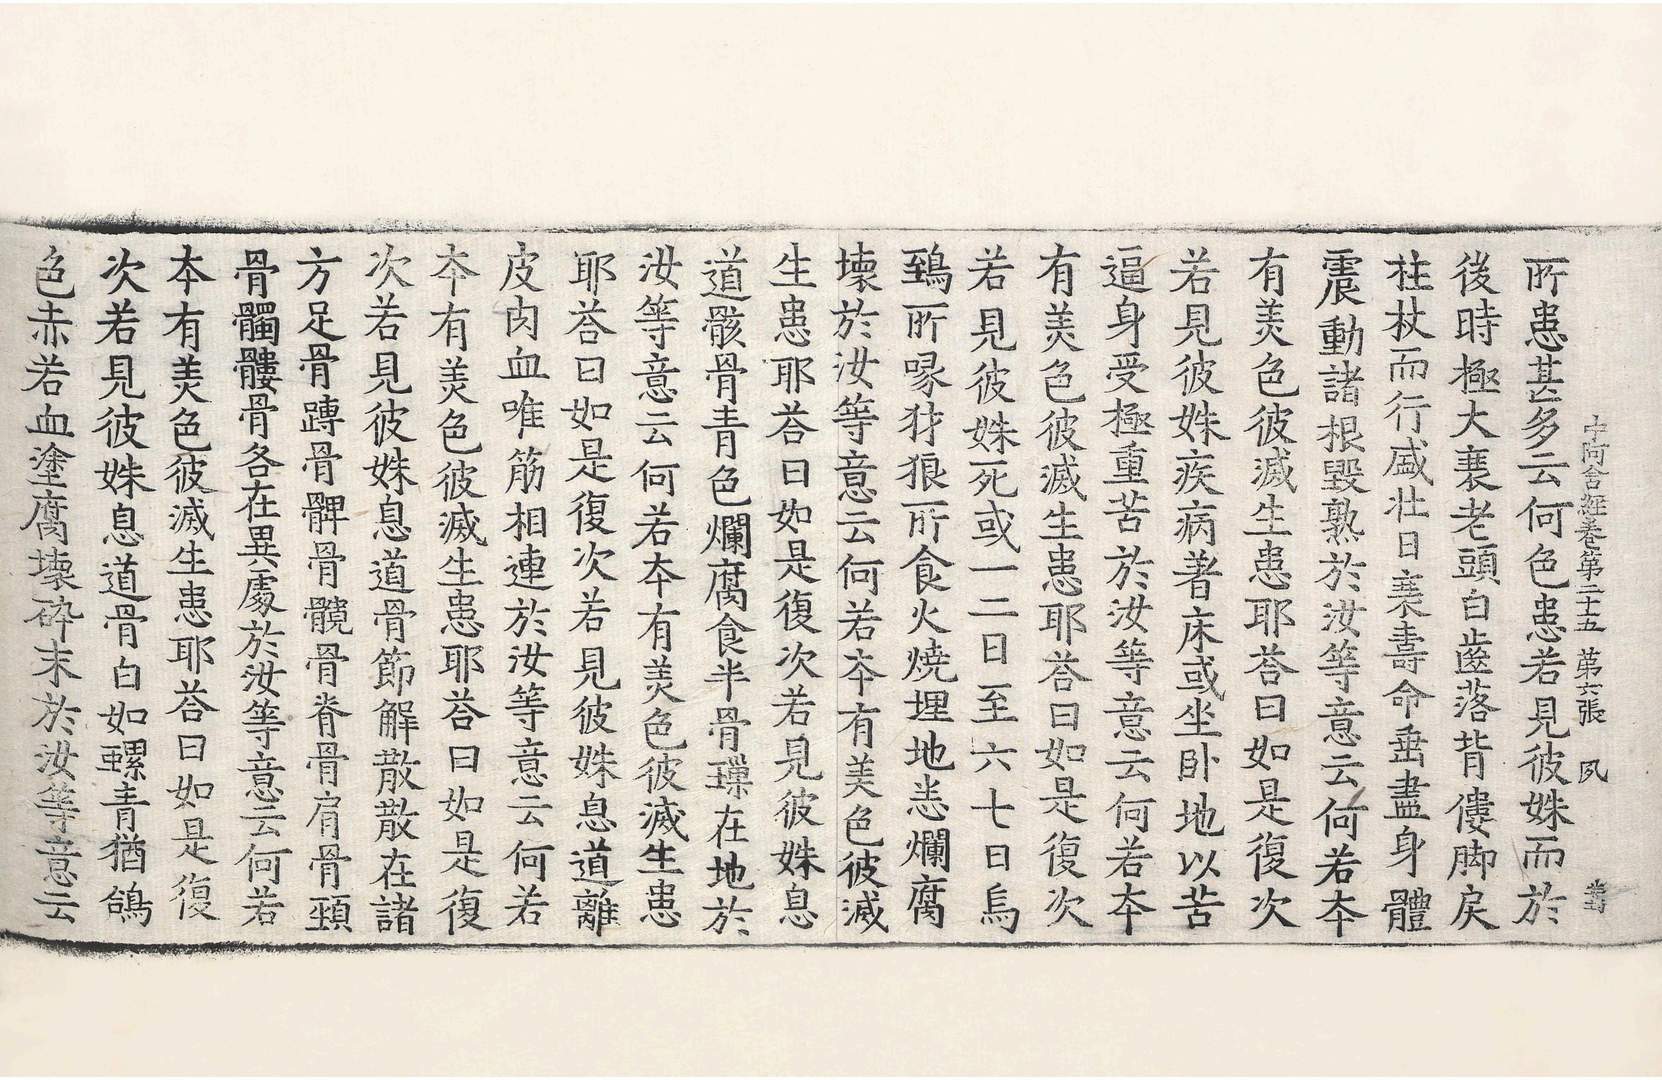 中阿含經卷第二十五 第六張 夙
所患甚多云何色患若見彼姝而於
後時極大衰老頭白齒落背僂脚戾
拄杖而行盛壯日衰壽命垂盡身體
震動諸根毀熟於汝等意云何若本
有美色彼滅生患耶荅曰如是復次
若見彼姝疾病著床或坐卧地以苦
逼身受極重苦於汝等意云何若本
有美色彼滅生患耶荅曰如是復次
若見彼姝死或一二日至六七日烏
鵄所啄犲狼所食火燒埋地悉爛腐
壞於汝等意云何若本有美色彼滅
生患耶荅曰如是復次若見彼姝息
道骸骨青色爛腐食半骨璅在地於
汝等意云何若本有美色彼滅生患
耶荅曰如是復次若見彼姝息道離
皮肉血唯筋相連於汝等意云何若
本有美色彼滅生患耶荅曰如是復
次若見彼姝息道骨節解散散在諸
方足骨䏝骨髀骨髖骨脊骨肩骨頸
骨髑髏骨各在異處於汝等意云何若
本有美色彼滅生患耶荅曰如是復
次若見彼姝息道骨白如螺青猶鴿
色赤若血塗腐壞碎末於汝等意云